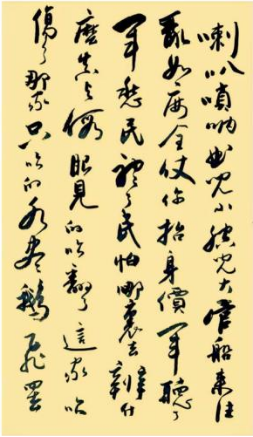 喇叭嗩吶曲兒小腔兒大官船來往
亂如麻全仗你抬身價軍聽了
軍愁民聽了民怕哪裏去辨什
麼真与假眼見的吹翻了這家吹
傷了那家只吹的水盡鵝飛罷